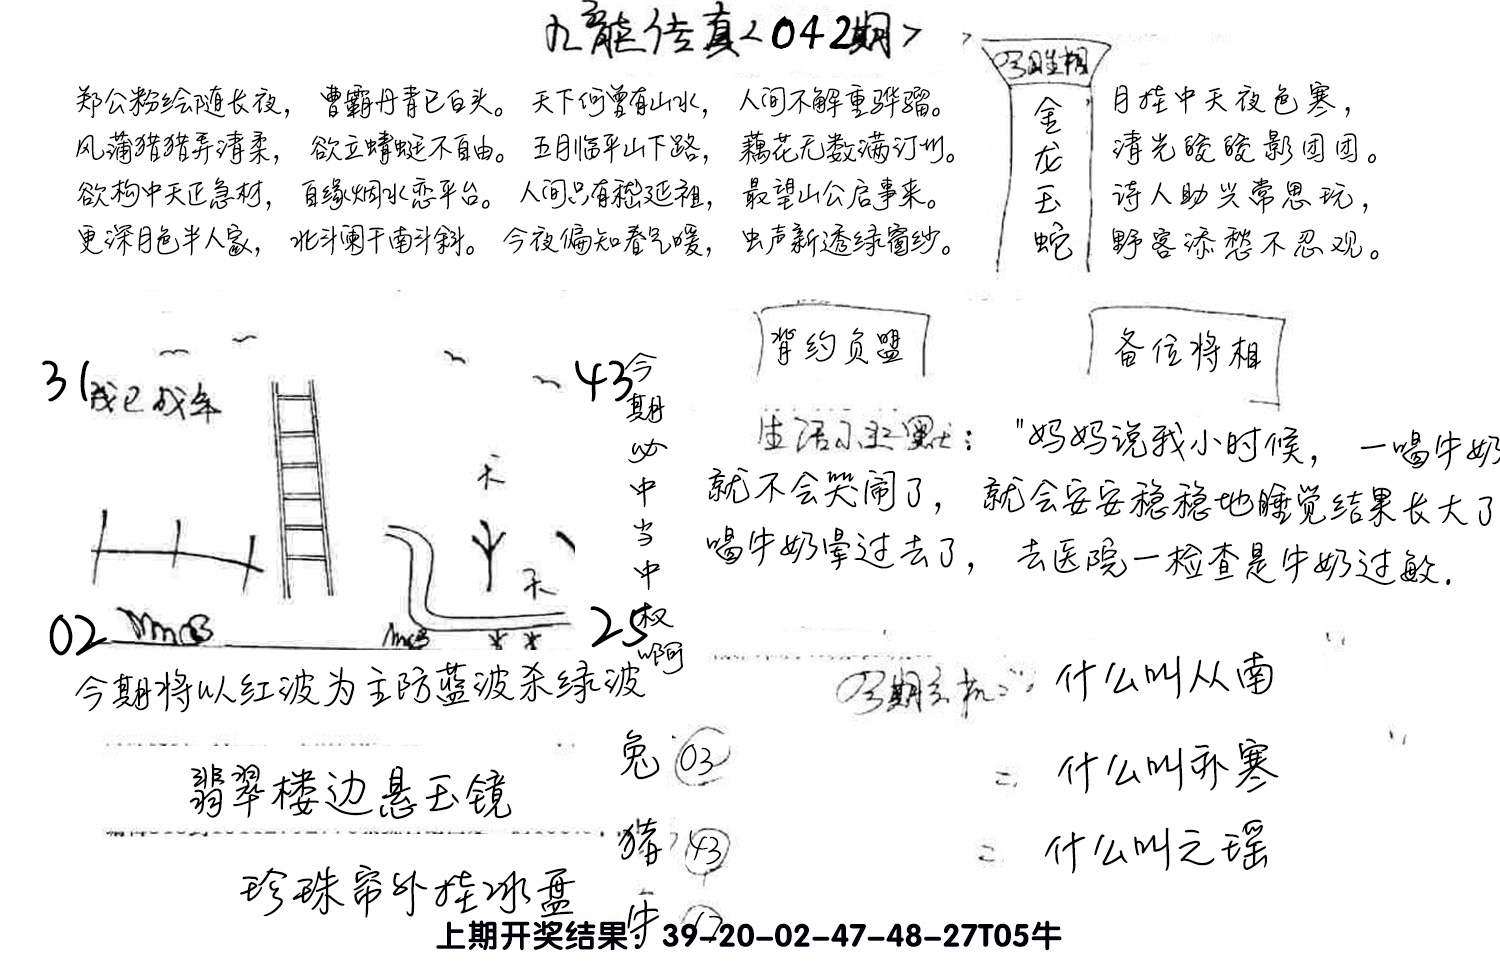 九龙传真<042期>
郑公粉绘随长夜，曹霸丹青已白头。天下何曾有山水，人间不解重骅骝。
风蒲猎猎弄清柔，欲立蜻蜓不自由。五月临平山下路，藕花无数满汀州。
欲构中天正急材，自缘烟水恋平台。人间只有嵇延祖，最望山公启事来。
更深月色半人家，北斗阑干南斗斜。今夜偏知春气暖，虫声新透绿窗纱。
金龙玉蛇
月挂中天夜色寒，
清光皎皎影团团。
诗人助兴常思玩，
野客添愁不忍观。
背约负盟
备位将相
31
43
02
25
天
天
今期必中当中权啊
今期将以红波为主防蓝波杀绿波
生活幽默："妈妈说我小时候，一喝牛奶
就不会哭闹了，就会安安稳稳地睡觉结果长大了
喝牛奶晕过去了，去医院一检查是牛奶过敏.
什么叫从南
二 什么叫卦寒
二 什么叫元瑶
翡翠楼边悬玉镜
珍珠帘外挂冰盘
兔 03
猪 43
牛
上期开奖结果：39-20-02-47-48-27T05牛